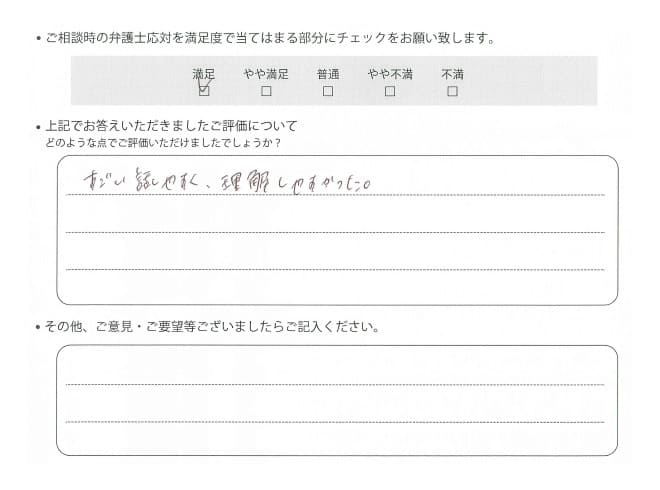 •ご相談時の弁護士応対を満足度で当てはまる部分にチェックをお願い致します。
満足 やや満足 普通 やや不満 不満
•上記でお答えいただきましたご評価について
どのような点でご評価いただけましたでしょうか？
すごい話しやすく、理解しやすかった。
•その他、ご意見・ご要望等ございましたらご記入ください。